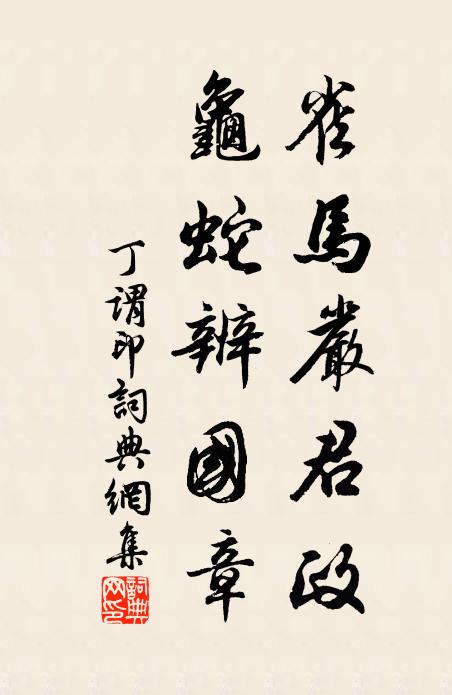 雀馬嚴君政
龜蛇辨國章
丁謂印詞典網集
詞典
网印